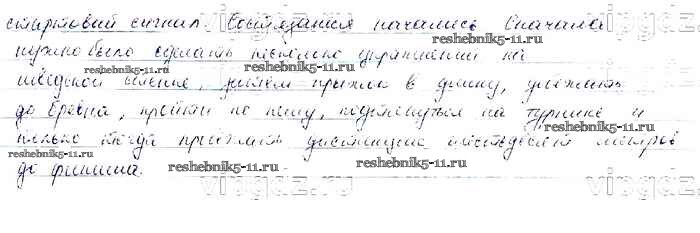 стартовый сигнал. Состязания начались. Сначала
нужно было сделать несколько упражнений на
reshebnik5-11.ru reshebnik5-11.ru
шведской стенке, затем прыжок в длину,
до бревна, пройти по нему, подтянуться на турнике и
только тогда пробежать дистанцию шестьдесят метров
reshebnik5-11.ru reshebnik5-11.ru reshebnik5-11.ru
до финиша.
vipgdz.com